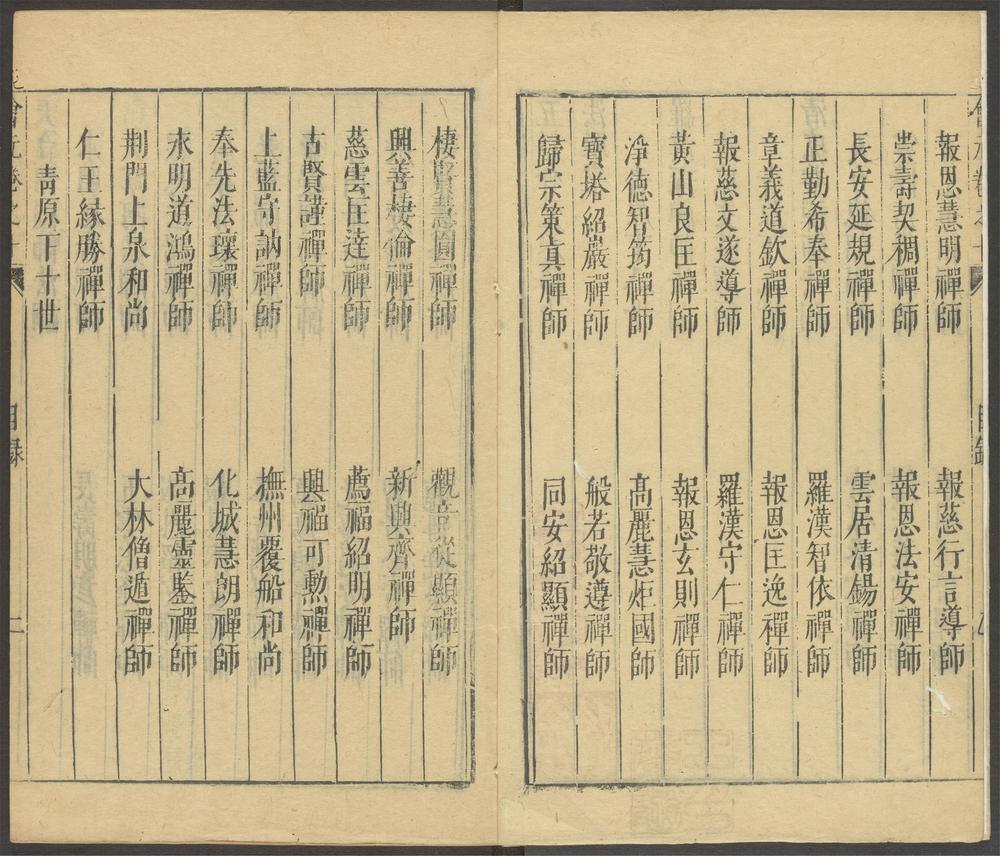 報恩慧明禪師 報慈行言導師
崇壽契稠禪師 報恩法安禪師
長安延規禪師 雲居清錫禪師
正勤希奉禪師 羅漢智依禪師
章義道欽禪師 報恩匡逸禪師
報慈文遂導師 羅漢守仁禪師
黃山良匡禪師 報恩玄則禪師
淨德智筠禪師 高麗慧炬國師
寶塔紹巖禪師 般若敬遵禪師
歸宗策真禪師 同安紹顯禪師
棲賢慧圓禪師 觀音從顯禪師
興善棲倫禪師 新興齊禪師
慈雲匡達禪師 薦福紹明禪師
古賢謹禪師 興福可勲禪師
上藍守訥禪師 撫州覆船和尚
奉先法瓌禪師 化城慧朗禪師
永明道鴻禪師 高麗靈鑒禪師
荆門上泉和尚 大林僧遁禪師
仁王緣勝禪師
青原下十世
會元卷之十 目録 二